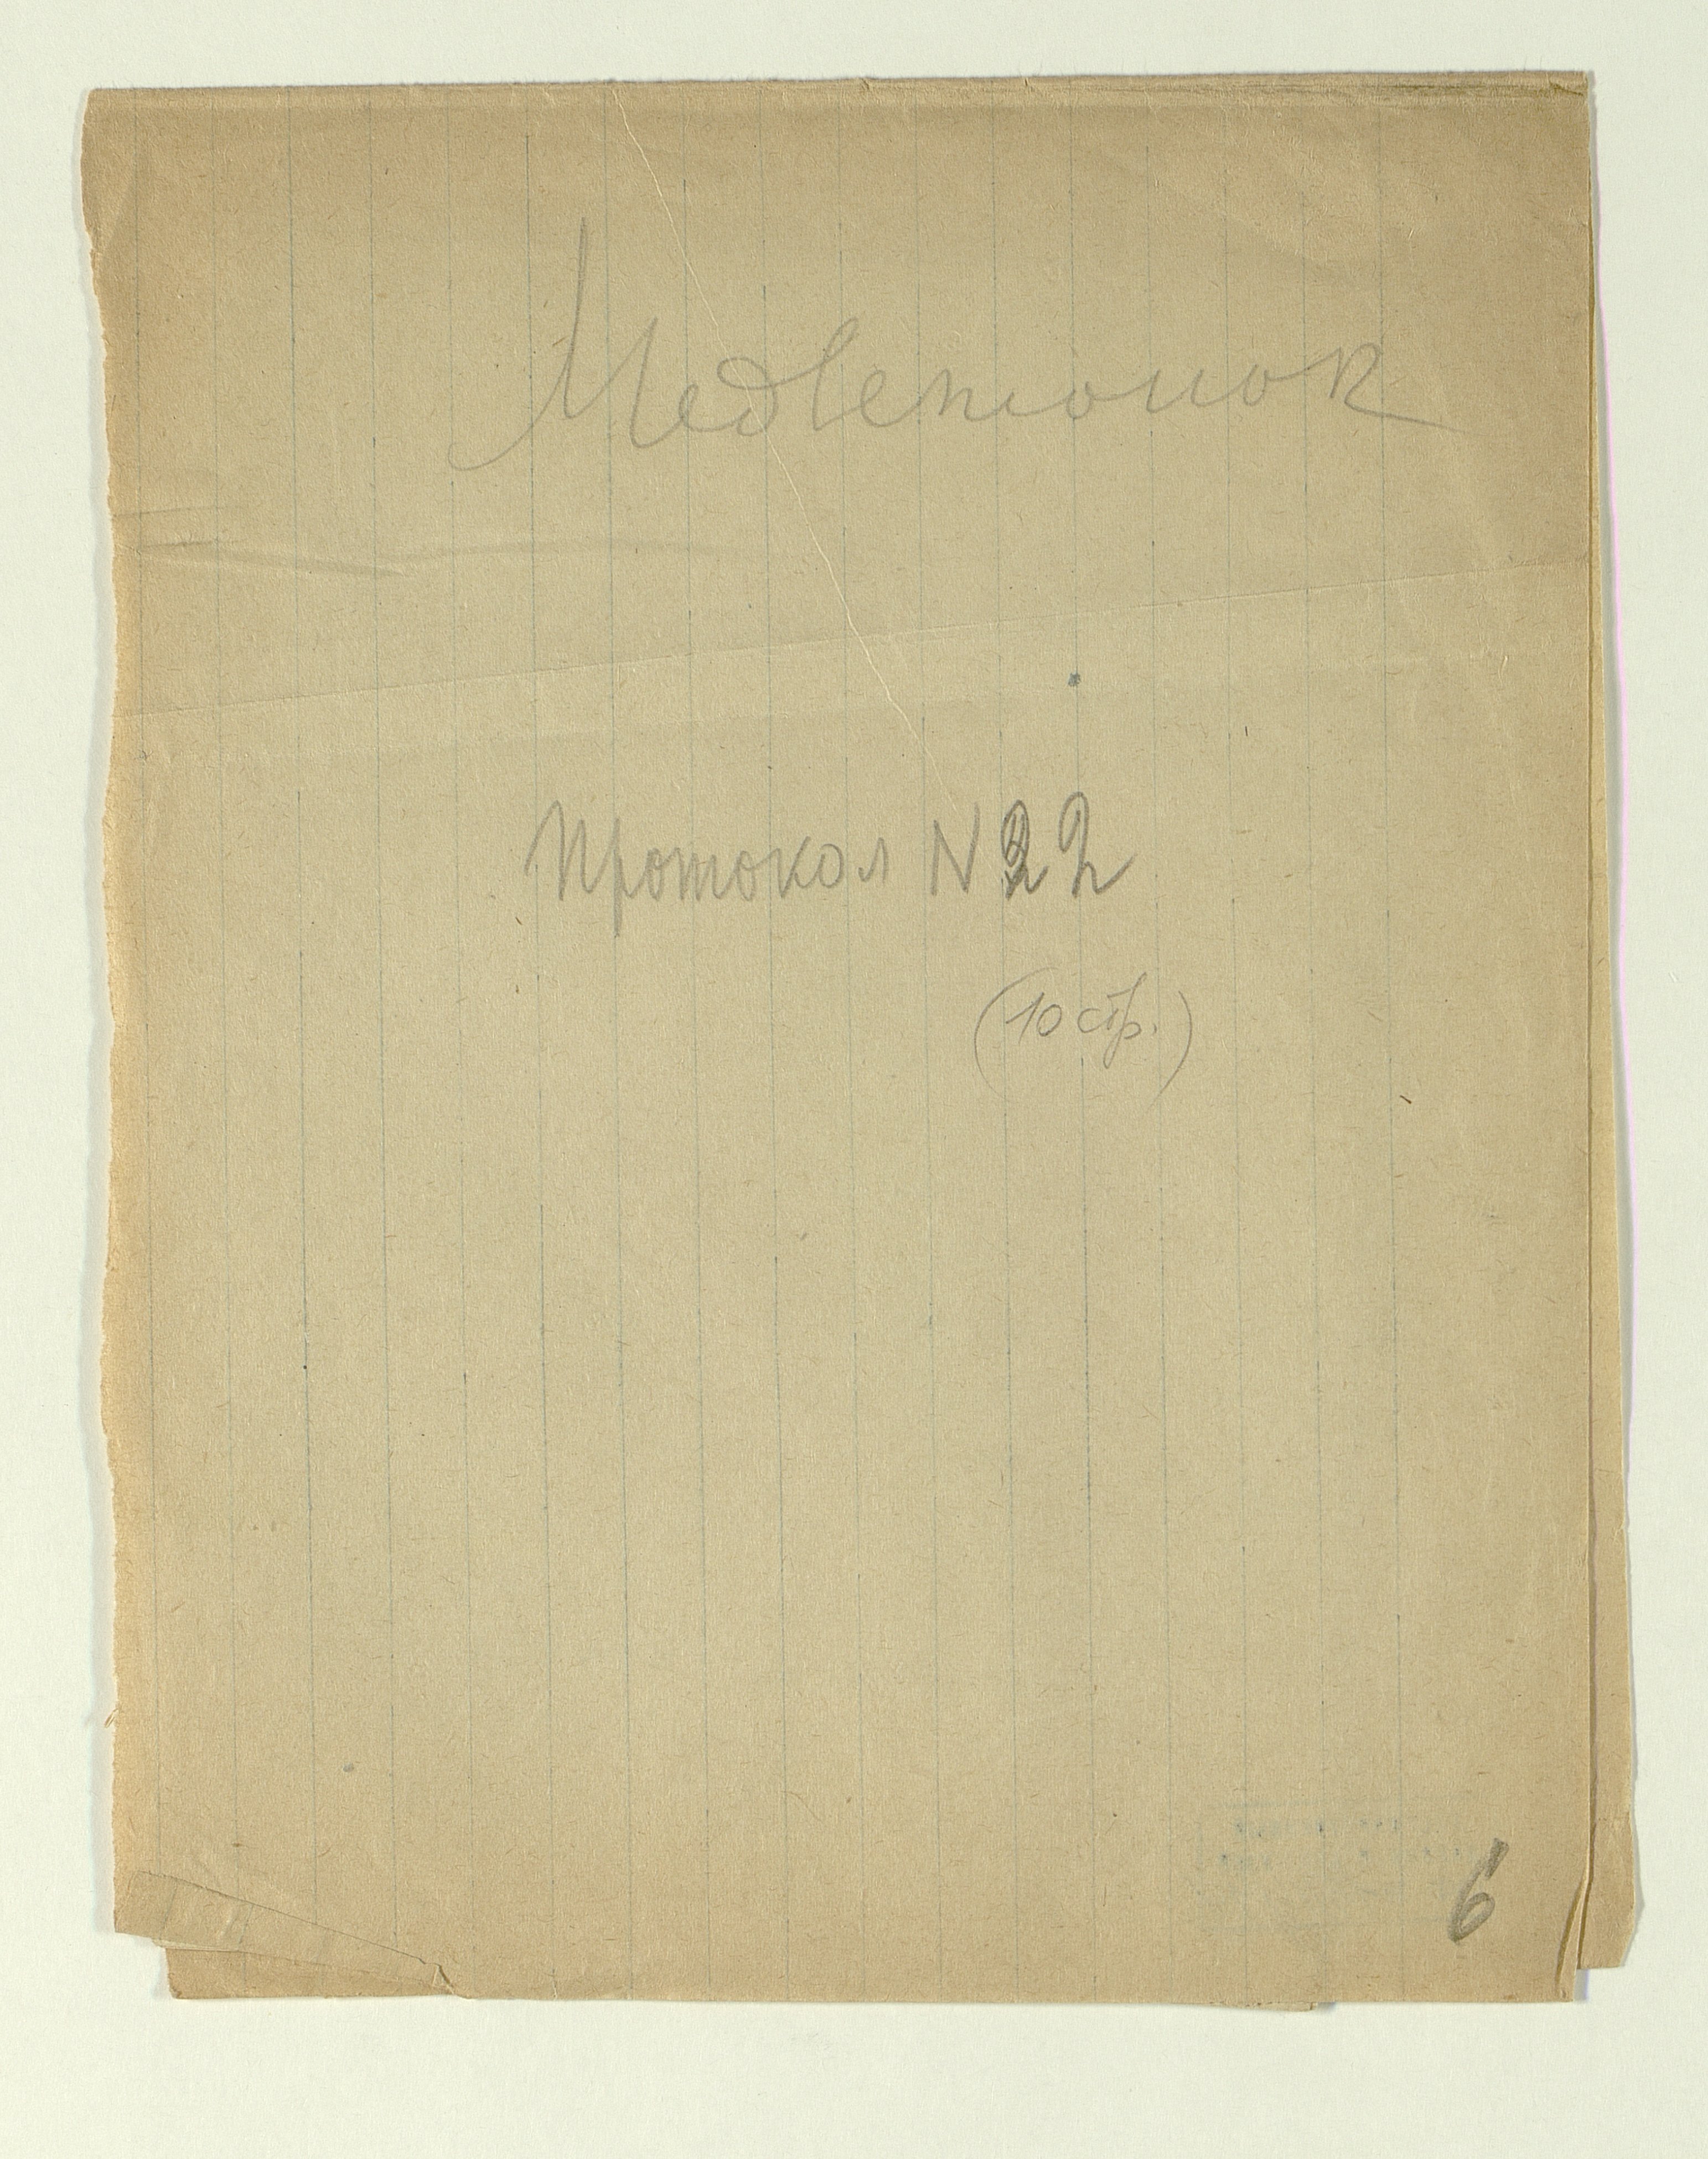 Медветюнок
Протокол N 22
(10 стр.)
6